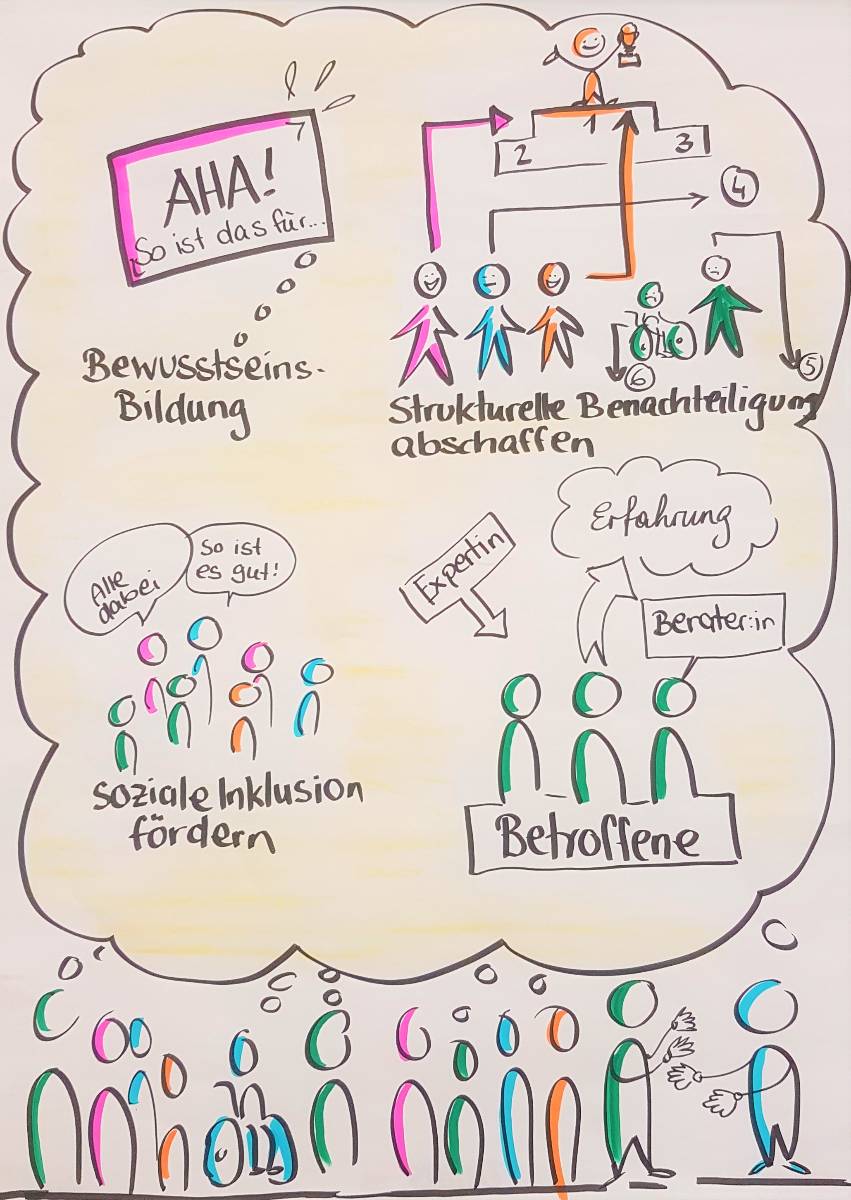 AHA!
So ist das für...
Bewusstseins-
Bildung
1
2
3
4
5
6
Strukturelle Benachteiligung
abschaffen
Alle
dabei
So ist
es gut!
soziale Inklusion
fördern
Expertin
Erfahrung
Berater:in
Betroffene